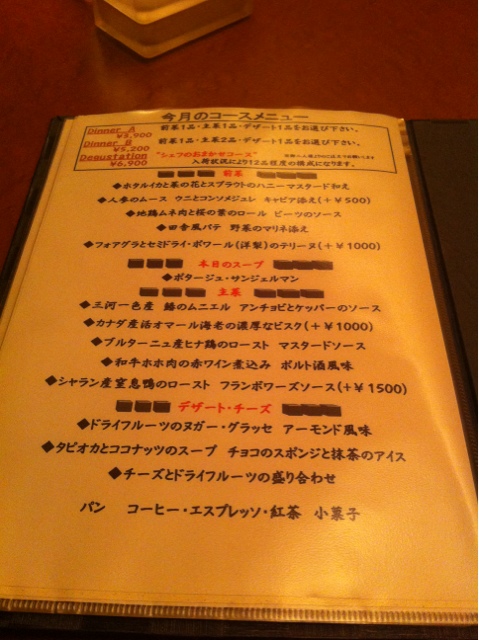 今月のコースメニュー
Dinner A 前菜1品・主菜1品・デザート1品をお選び下さい。
¥3,900
Dinner B 前菜1品・主菜2品・デザート1品をお選び下さい。
¥5,200
Degustation "シェフのおまかせコース"
¥6,900 入荷状況により12品程度の構成になります。
前菜
◆ホタルイカと菜の花とスプラウトのハニーマスタード和え
◆人参のムース ウニとコンソメジュレ キャビア添え(+¥500)
◆地鶏ムネ肉と桜の葉のロール ビーツのソース
◆田舎風パテ 野菜のマリネ添え
◆フォアグラとセミドライ・ポワール(洋梨)のテリーヌ(+¥1000)
本日のスープ
◆ポタージュ・サンジェルマン
主菜
◆三河一色産 鰆のムニエル アンチョビとケッパーのソース
◆カナダ産活オマール海老の濃厚なビスク(+¥1000)
◆ブルターニュ産ヒナ鶏のロースト マスタードソース
◆和牛ホホ肉の赤ワイン煮込み ポルト酒風味
◆シャラン産窒息鴨のロースト フランボワーズソース(+¥1500)
デザート・チーズ
◆ドライフルーツのヌガー・グラッセ アーモンド風味
◆タピオカとココナッツのスープ チョコのスポンジと抹茶のアイス
◆チーズとドライフルーツの盛り合わせ
パン コーヒー・エスプレッソ・紅茶 小菓子